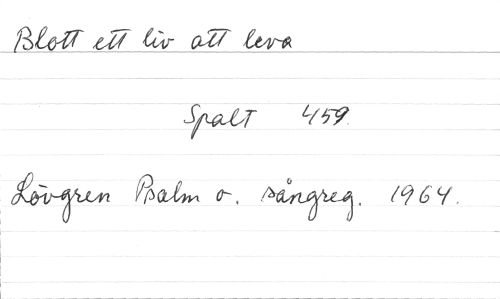 Blott ett liv att leva
Spalt 459.
Lövgren Psalm o. sångreg. 1964.